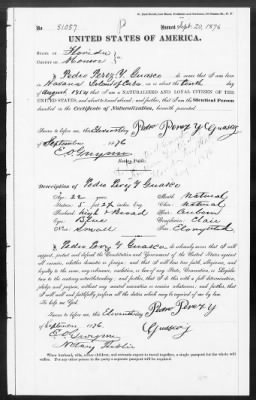 No. 51057
Issued Sept. 20, 1876
UNITED STATES OF AMERICA.
STATE OF Florida
COUNTY OF Monroe
I, Pedro Perez Y. Guasco do swear that I was born
in Havana Island of Cuba on or about the tenth day
of August 1854 that I am a NATURALIZED AND LOYAL CITIZEN OF THE
UNITED STATES, and about to travel abroad; and further, that I am the Identical Person
described in the Certificate of Naturalization, herewith presented.
Sworn to before me, this Eleventh day Pedro Perez Y Guasco
of September 1876
E O Gwynn
Notary Public.
Description of Pedro Perez Y Guasco
Age: 22 years Mouth: Natural
Stature: feet inches, Eng. Chin: Natural
Forehead: high & Broad Hair: Auburn
Eyes: Blue Complexion: Clair
Nose: Small Face: Elongated
I, Pedro Perez Y Guasco do solemnly swear that I will
support, protect and defend the Constitution and Government of the United States against
all enemies, whether domestic or foreign; and that I will bear true faith, allegiance, and
loyalty to the same, any ordinance, resolution, or law of any State, Convention, or Legisla-
ture to the contrary notwithstanding; and further, that I do this with a full determination,
pledge and purpose, without any mental reservation or evasion whatsoever; and further, that
I will well and faithfully perform all the duties which may be required of me by law.
So help me God.
Sworn to before me, this Eleventh day Pedro Perez Y
of September 1876 Guasco
E O Gwynn
Notary Public
Where husband, wife, minor children, and servants expect to travel together, a single passport for the whole will
suffice. For any other person in the party a separate passport will be required.